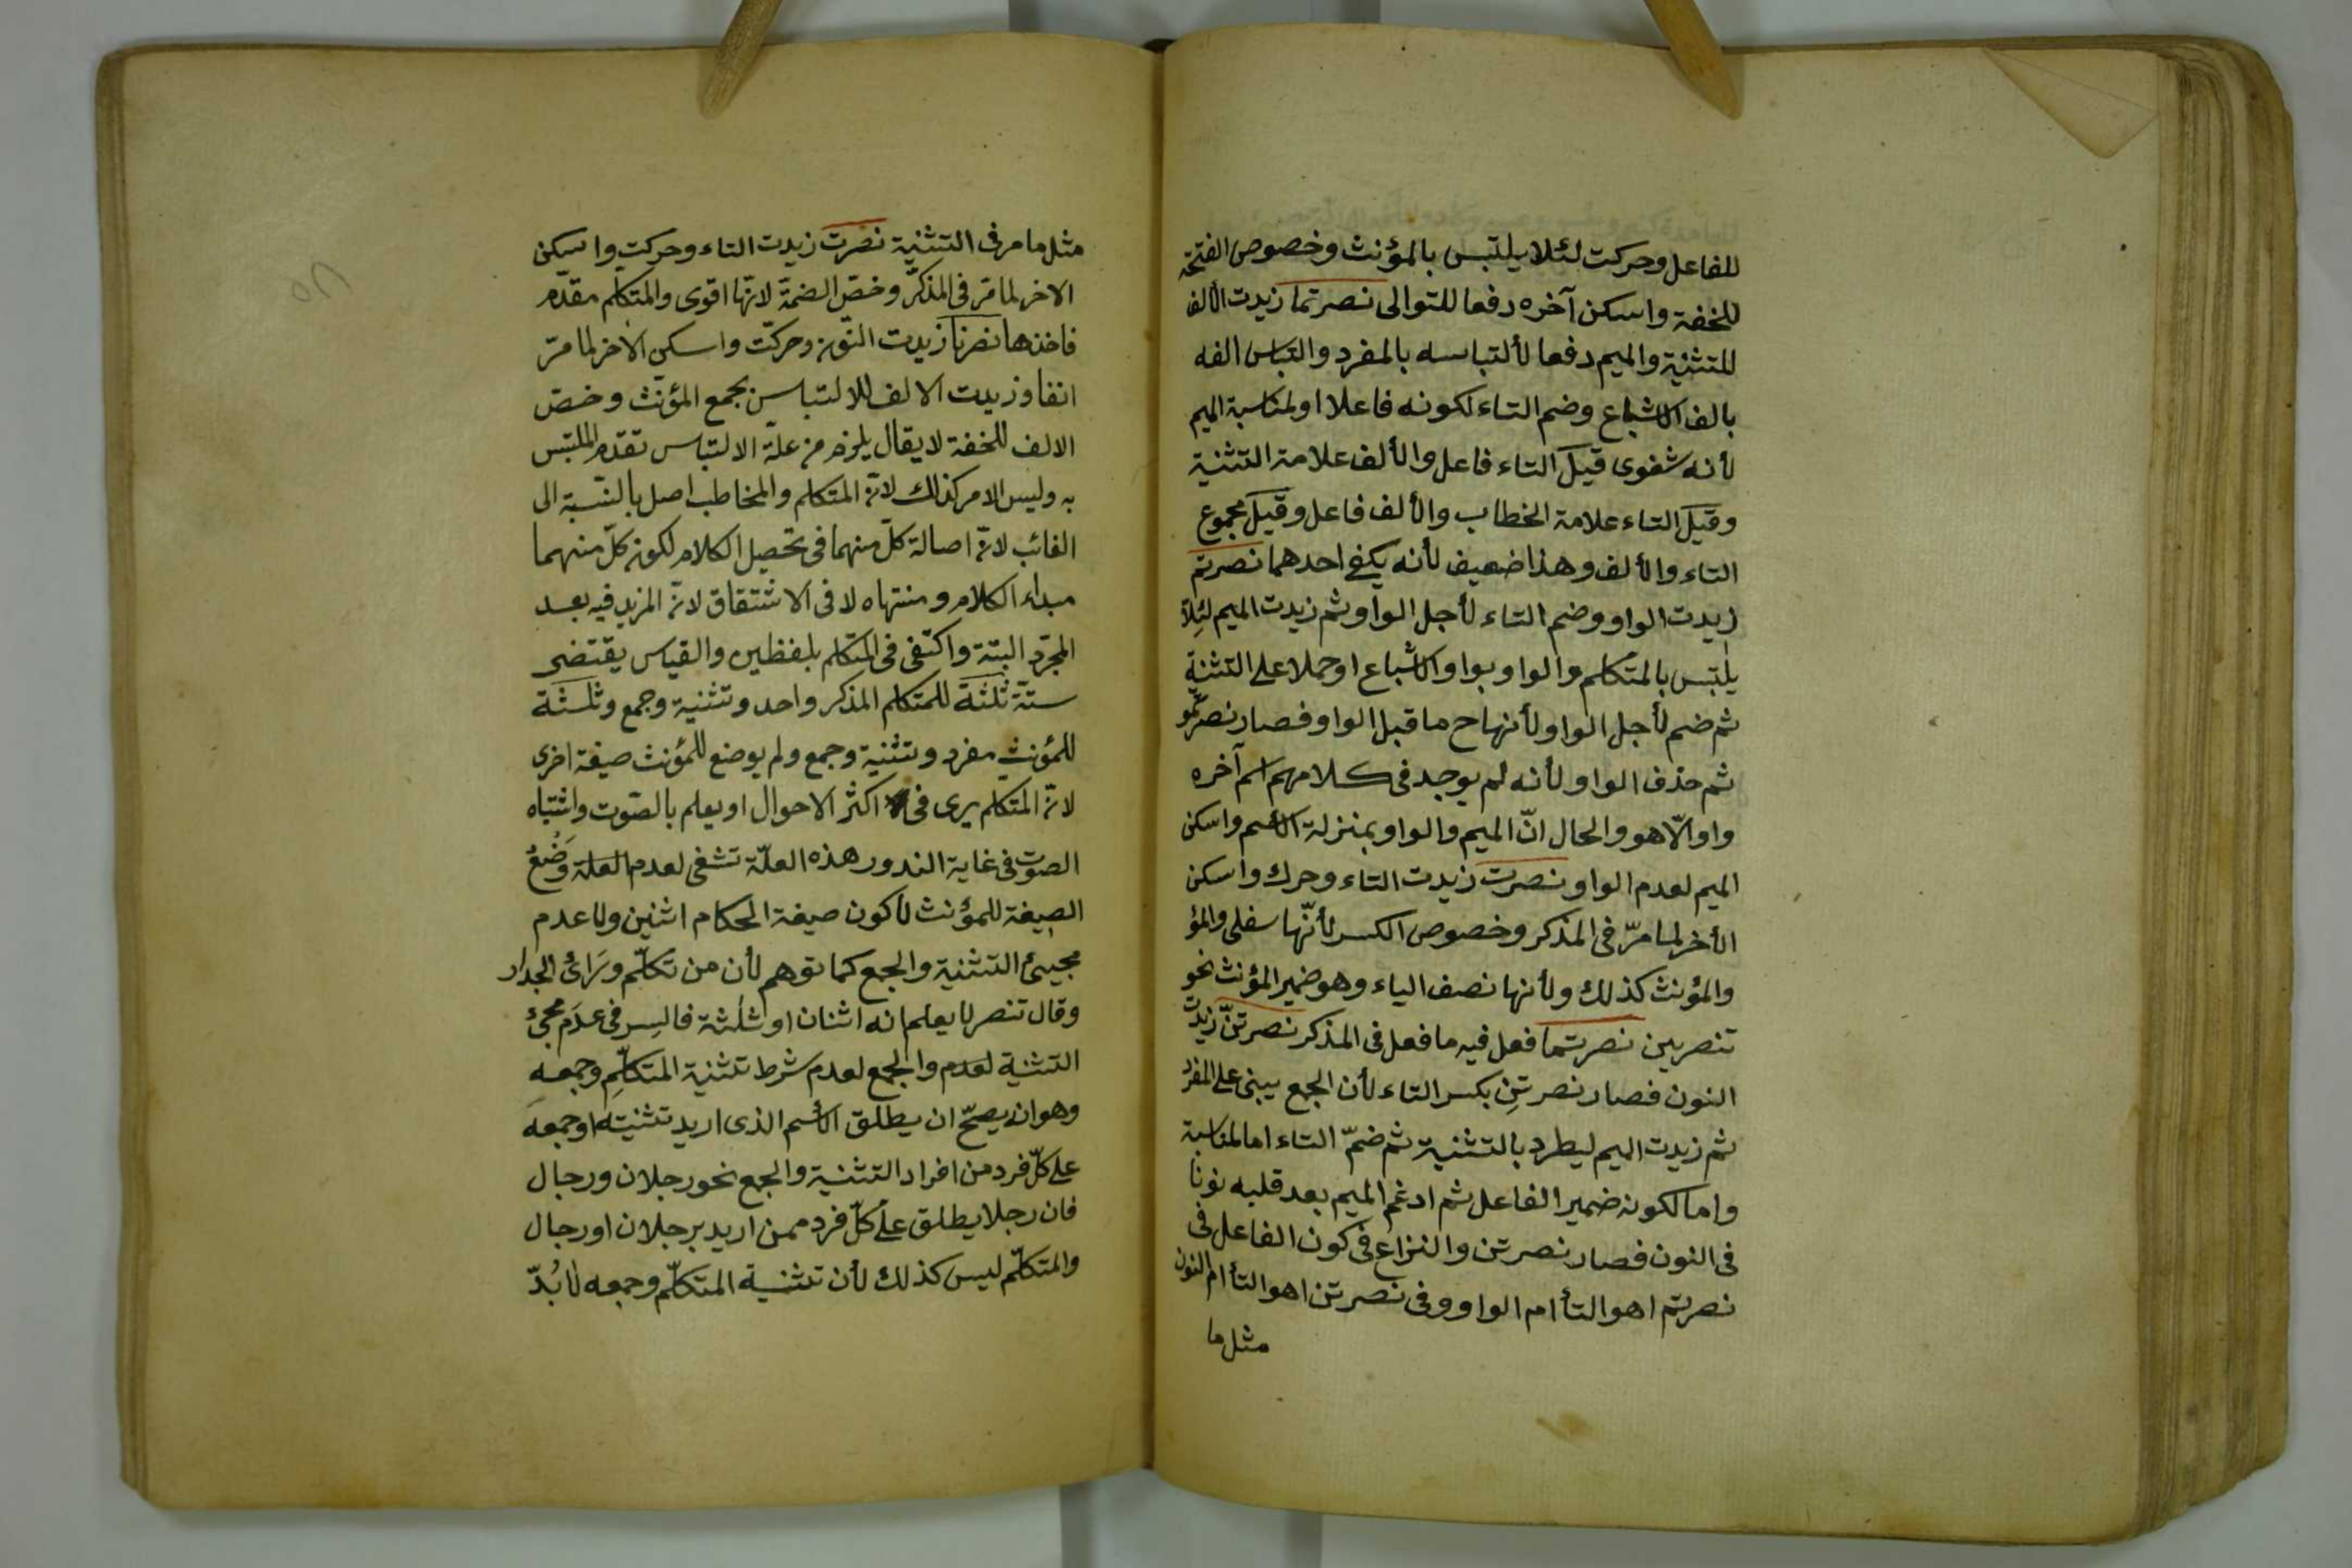 للفاعل وحركت لئلا يلتبس بالمؤنث وخصوص الفتحة
للخفة واسكن آخره دفعا للتوالى نصرتما زيدت الألف
للتثنية والميم دفعا لألتباسه بالمفرد والتباس الفه
بالف الاشباع وضم التاء لكونه فاعلا او لمناسبة الميم
لأنه شفوى قيل التاء فاعل والألف علامة التثنية
وقيل التاء علامة الخطاب والألف فاعل وقيل مجموع
التاء والألف وهذا ضعيف لأنه يكفى احدهما نصرتم
زيدت الواو وضم التاء لأجل الواو ثم زيدت الميم لئلا
يلتبس بالمتكلم والواو بواو الاشباع او حملا على التثنية
ثم ضم لأجل الواو لأنها ح ما قبل الواو فصار نصرتمو
ثم حذف الواو لأنه لم يوجد فى كلامهم اسم آخره
واو الّا هو والحال انّ الميم والواو بمنزلة الأسم واسكن
الميم لعدم الواو نصرت زيدت التاء وحرك واسكن
الأخر لما مرّ فى المذكر وخصوص الكسر لأنّها سفلى والمؤ
والمؤنث كذلك ولأنها نصف الياء وهو ضمير المؤنث نحو
تنصرين نصرتما فعل فيه ما فعل فى المذكر نصرتنّ زيدت
النون فصار نصرتنِ بكسر التاء لأن الجمع يبنى على المفرد
ثم زيدت الميم ليطرد بالتثنية ثم ضمّ التاء اما لمناسبة
واما لكونه ضمير الفاعل ثم ادغم الميم بعد قلبه نونا
فى النون فصار نصرتن والنزاع فى كون الفاعل فى
نصرتم اهو التأ ام الواو وفى نصرتن اهو التأ ام النون
مثل ما
مثل ما مر فى التثنية نصرت زيدت التاء وحركت واسكن
الاخر لما مّر فى المذكّر وخصّ الضمّة لانّها اقوى والمتكلم مقدّم
فاخذها نصرنا زيدت النّون وحركّت واسكن الآخر لما مّر
انفا وزيدت الالف للالتباس بجمع المؤنّث وخصّ
الالف للخفة لا يقال يلزم من علّة الالتباس تقدّم الملتبس
به وليس الامر كذلك لانّ المتكلم والمخاطب اصل بالنّسبة الى
الغائب لانّ اصالة كلّ منهما فى تحصيل الكلام لكون كلّ منهما
مبداء الكلام ومنتهاه لا فى الاشتقاق لانّ المزيد فيه بعد
المجرّد البتة واكتفى فى المتكلم بلفظين والقياس يقتضى
ستّة ثلثة للمتكلم المذكر واحد وتثنية وجمع وثلثة
للمؤنث مفرد وتثنية وجمع ولم يوضع للمؤنث صيغة اخرى
لانّ المتكلم يرى فى اكثر الاحوال او يعلم بالصّوت واشتباه
الصوت فى غاية الندور هذه العلّة تشفى لعدم العلة وَضْعُ
الصيغة للمؤنث لأكون صيغة الحكام اثنين ولا عدم
مجيئ التثنية والجمع كما توهم لأن من تكلّم ورَائَ الجدار
وقال تنصر لا يعلم انه اثنان او ثلثة فالسِر فى عدَم مجئ
التثنية لعدم والجمع لعدم شرط تثنية المتكلّم وجمعه
وهو ان يصحّ ان يطلق الأسم الذى اريد تثنيته او جمعه
على كلّ فرد من افراد التثنية والجمع نحو رجلان ورجال
فان رجلا يطلق على كلّ فرد ممن اريد برجلان او رجال
والمتكلّم ليس كذلك لأن تثنية المتكلّم وجمعه لا بُدّ